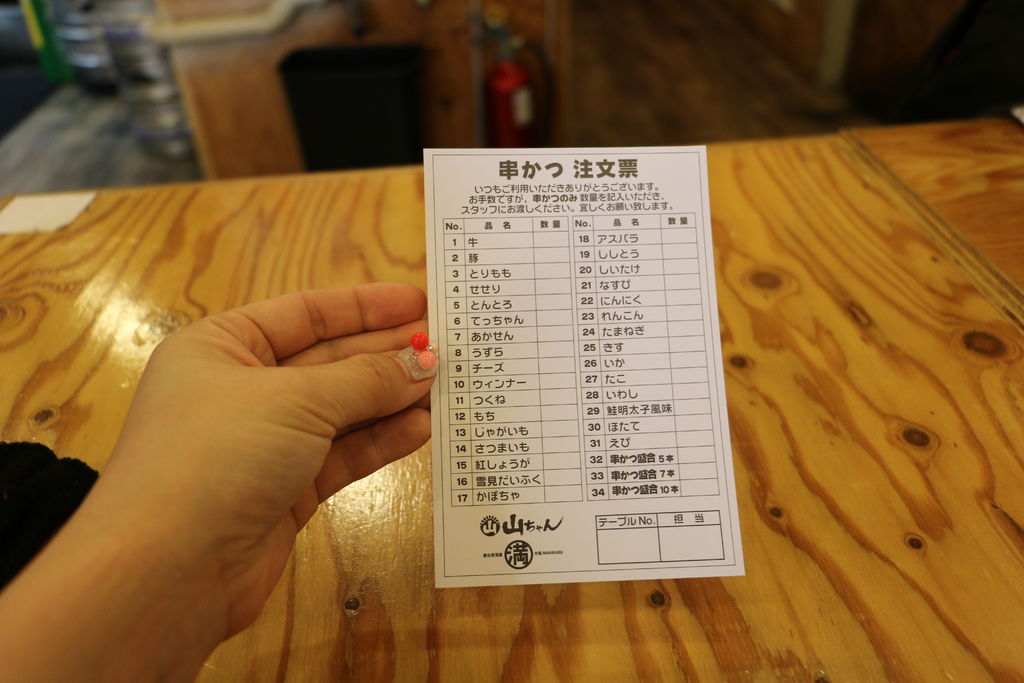 串かつ 注文票
いつもご利用いただきありがとうございます。
お手数ですが、串かつのみ 数量を記入いただき、
スタッフにお渡しください。宜しくお願い致します。
No. 品名 数量
1 牛
2 豚
3 とりもも
4 せせり
5 とんとろ
6 てっちゃん
7 あかせん
8 うずら
9 チーズ
10 ウィンナー
11 つくね
12 もち
13 じゃがいも
14 さつまいも
15 紅しょうが
16 雪見だいふく
17 かぼちゃ
No. 品名 数量
18 アスパラ
19 ししとう
20 しいたけ
21 なすび
22 にんにく
23 れんこん
24 たまねぎ
25 きす
26 いか
27 たこ
28 いわし
29 鮭明太子風味
30 ほたて
31 えび
32 串かつ盛合 5本
33 串かつ盛合 7本
34 串かつ盛合 10本
山ちゃん
満
テーブルNo. 担当